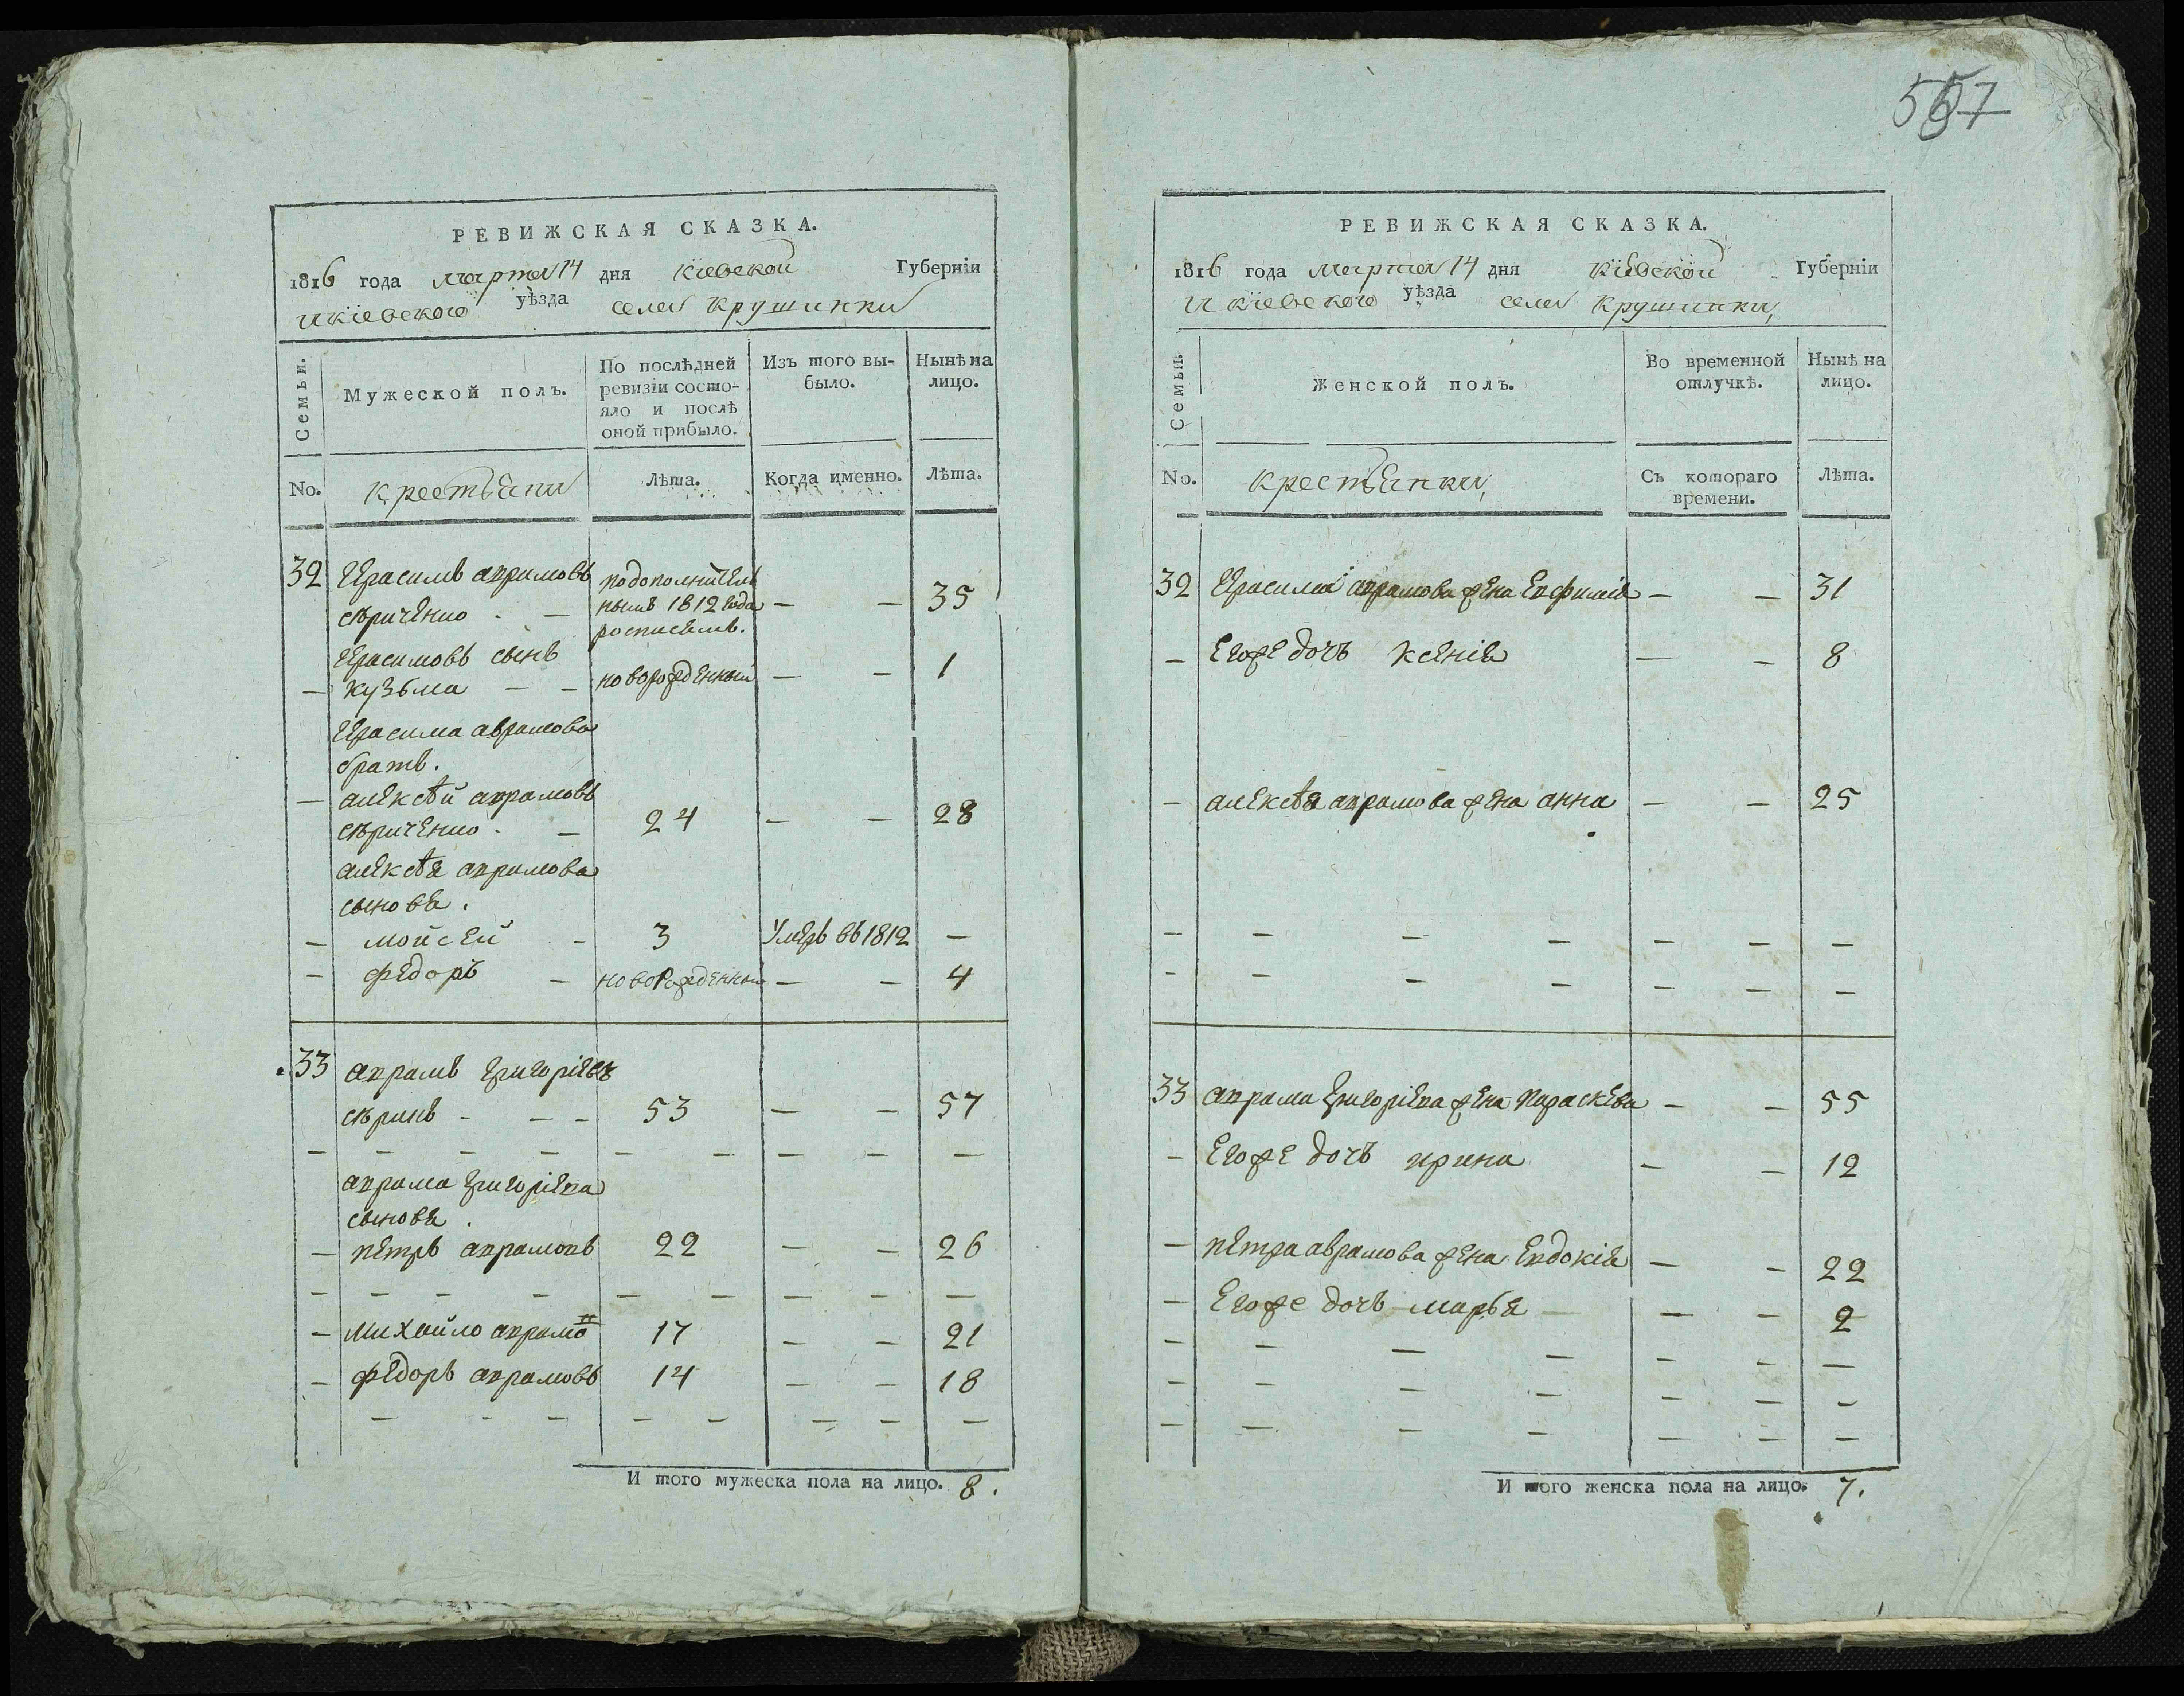 557
РЕВИЖСКАЯ СКАЗКА.
1816 года марта 14 дня Кіевской Губерніи
и кіевского уѣзда села Крушинки
Семьи.
Мужеской полъ.
По послѣдней ревизіи состояло и послѣ оной прибыло.
Изъ того выбыло.
Нынѣ на лицо.
No. крестьяни Лѣта. Когда именно. Лѣта.
32 Герасимъ аврамовъ подополнитель
нымъ 1812 года — — 35
росписямъ.
Герасимовъ сынъ
— кузьма — — новорожденный — — 1
Герасима аврамова
братъ.
— алексѣй аврамовъ
— 24 — — 28
алексѣя аврамова
сыновя.
— мойсей - 3 Умеръ въ 1812 —
— федоръ — новорожденный — — 4
33 аврамъ григоріевъ
53 — — 57
— — — — — — — — —
аврама григоріева
сыновя.
— петръ аврамовъ 22 — — 26
— — — — — — — — —
— михайло аврамо 17 — — 21
— федоръ аврамовъ 14 — — 18
— - — — — — — —
И того мужеска пола на лицо. 8.
РЕВИЖСКАЯ СКАЗКА.
1816 года марта 14 дня Кіевской Губерніи
и кіевского уѣзда села Крушинки,
Семьи.
Женской полъ.
Во временной отлучкѣ.
Нынѣ на лицо.
No. крестьянки, Съ котораго времени. Лѣта.
32 Герасима аврамова жена Евфимія — — 31
— Егоже дочъ ксенія — — 8
— алексѣя аврамова жена анна — — 25
— — — — — — —
- — — — — — —
33 аврама григоріева жена Параскева — — 55
— Егоже дочъ ирина — — 12
— петра аврамова жена Евдокія — — 22
— Егоже дочъ марья — — 2
— — — — — — —
— — — — — — —
— — — — — — —
И того женска пола на лицо. 7.